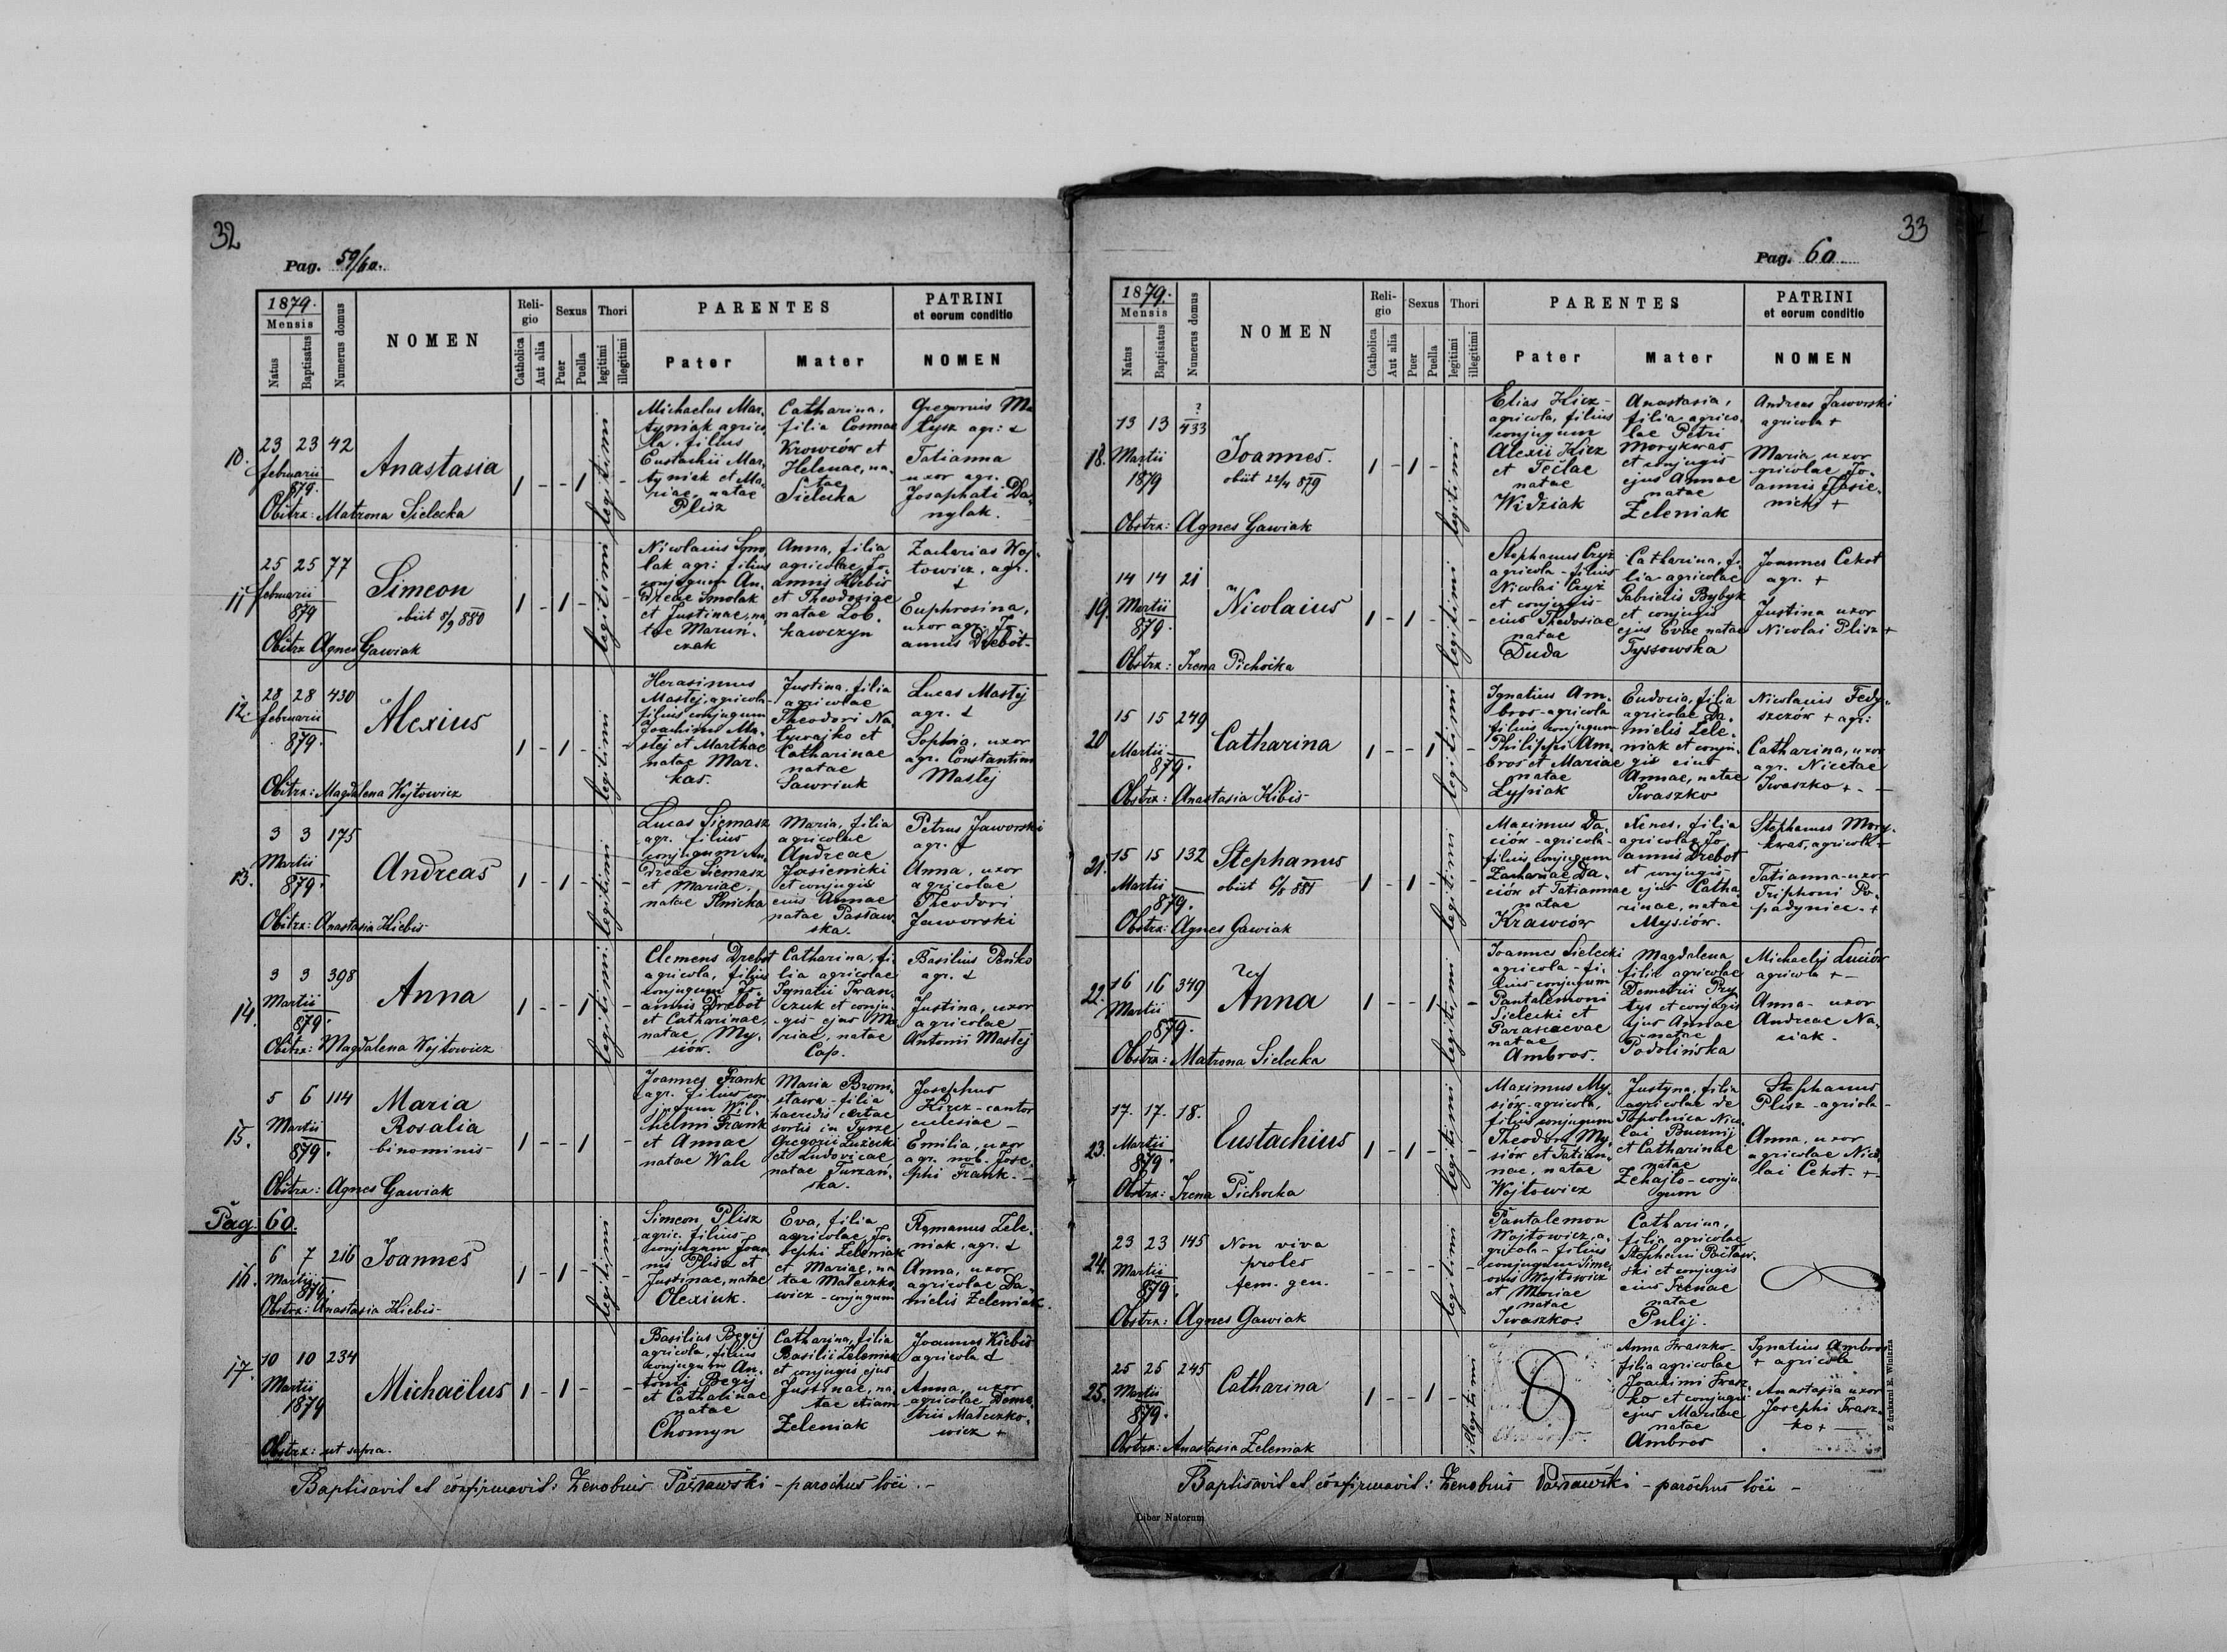 32
Pag. 59/60.
1879.
Mensis
Natus
Baptisatus
Numerus domus
NOMEN
Religio
Catholica
Aut alia
Sexus
Puer
Puella
Thori
legitimi
illegitimi
PARENTES
Pater
Mater
PATRINI
et eorum conditio
NOMEN
10.
23 23 42
februarii
879.
Anastasia
1 - - 1 legitimi -
Michaelus Mar-
tyniak agrico-
la, filius
Eustachii Mar-
tyniak et Ma-
riae, natae
Plisz
Catharina,
filia Cosmae
Krowciów et
Helenae, na-
tae
Sielecka
Gregorius Ma
łysz agr: +
Tatianna
uxor agr.
Josaphati Da-
nylak.
Obstrx: Matrona Sielecka
11
25 25 77
februarii
879
Simeon
obiit 8/9 880
1 - 1 - legitimi -
Nicolaius Smo
lak agr: filius
conjugum An-
dreae Smolak
et Justinae, na
tae Maruń-
czak
Anna, filia
agricolae Jo-
annis Kiebis
et Theodosiae
natae Lob-
kawczyn
Zacharias Woj-
towicz, agr.
+
Euphrosina,
uxor agr. Jo-
annis Drebot-
Obstrx Agnes Gawiak
12.
28 28 430
februarii
879.
Alexius
1 - 1 - legitimi -
Herasimus
Mastej, agricola
filius conjugum
Joachimi Ma-
stej et Marthae
natae Mar-
kas.
Justina, filia
agricolae
Theodori Na
tywajko et
Catharinae
natae
Sawriuk
Lucas Mastej
agr. +
Sophia, uxor
agr. Constantini
Mastej
Obstrx: Magdalena Wojtowicz
13.
3 3 175
Martii
879.
Andreas
1 - 1 - legitimi -
Lucas Siemasz
agr. filius
conjugum An-
dreae Siemasz
et Mariae,
natae Ilnicka
Maria, filia
agricolae
Andreae
Jasienicki
et conjugis
eius Annae
natae Pasław-
ska.
Petrus Jaworski
agr. +
Anna, uxor
agricolae
Theodori
Jaworski
Obstrx: Anastasia Kiebis
14.
3 3 398
Martii
879.
Anna
1 - - 1 legitimi -
Clemens Drebot
agricola, filius
conjugum Jo-
annis Drebot
et Catharinae,
natae My-
siów.
Catharina, fi-
lia agricolae
Ignatii Iwan-
czuk et conju-
gis ejus Ma
riae, natae
Cap.
Basilius Peńko
agr. +
Justina, uxor
agricolae
Antonii Mastej
Obstrx: Magdalena Wojtowicz
15.
5 6 114
Martii
879.
Maria
Rosalia
binominis
1 - - 1 -
Joannes Frank
agr. filius con
jugum Wil-
helmi Frank
et Annae
natae Wale
Maria Broni-
slawa - filia
haeredis certae
sortis in Turze
Gregorii Luzecki
et Ludovicae
natae Turzań-
ska.
Josephus
Kirez - cantor
ecclesiae -
Emilia, uxor
agr. nob. Jose-
phi Frank. -
Obstrx: Agnes Gawiak
Pag. 60.
16.
6 7 216
Martii
879.
Joannes
1 - 1 - legitimi -
Simeon Plisz
agric. filius
conjugum Joan
nis Plisz et
Justinae, natae
Olexiuk.
Eva, filia
agricolae Jo-
sephi Zeleniak
et Mariae, na
tae Mateczko-
wicz - conjugum
Romanus Zele-
niak, agr. +
Anna, uxor
agricolae Da-
nielis Zeleniak.
Obstrx: Anastasia Kiebis
17.
10 10 234
Martii
1879
Michaëlus
1 - 1 - -
Basilius Begij
agricola, filius
conjugum An-
tonii Begij
et Catharinae
natae
Chomyn
Catharina, filia
Basilii Zeleniak
et conjugis ejus
Justinae, na-
tae etiam
Zeleniak
Joannes Kiebis
agricola +
Anna, uxor
agricolae Deme-
trii Mateczko-
wicz +
Obstrx: ut supra.
Baptisavit et confirmavit: Zenobius Pasławski - parochus loci. -
33
Pag. 60
1879.
Mensis
Natus
Baptisatus
Numerus domus
NOMEN
Religio
Catholica
Aut alia
Sexus
Puer
Puella
Thori
legitimi
illegitimi
PARENTES
Pater
Mater
PATRINI
et eorum conditio
NOMEN
18.
13 13 ?
433
Martii
1879
Joannes.
obiit 22/4 879
1 - 1 - legitimi
Elias Kicz -
agricola, filius
conjugum
Alexii Kicz
et Teclae
natae
Widziak
Anastasia,
filia agrico-
lae Petri
Morykwas
et conjugis
ejus Annae
natae
Zeleniak
Andreas Jaworski
agricola +
Maria uxor
agricolae Jo-
annis Jasie-
nicki +
Obstrx: Agnes Gawiak
19.
14 14 21
Martii
879.
Nicolaius
1 - 1 - legitimi -
Stephanus Cryż
agricola - filius
Nicolai Cryż
et conjugis
eius Thedosiae
natae
Duda
Catharina, fi-
lia agricolae
Gabrielis Bybyk
et conjugis
ejus Evae natae
Tyssowska
Joannes Cekot
agr. +
Justina uxor
Nicolai Plisz +
Obstrx: Irena Pichocka
20
15 15 249
Martii
879.
Catharina
1 - - 1 legitimi -
Ignatius Am-
bros - agricola
filius conjugum
Philippi Am-
bros et Mariae
natae
Łypiak
Eudocia, filia
agricolae Da-
nielis Zele-
niak et conju-
gis eius
Annae, natae
Iwaszko
Nicolaius Fedy-
szczów + agr:
Catharina, uxor
agr. Nicetae
Iwaszko + -
Obstrx: Anastasia Kibis
21.
15 15 132
Martii
879.
Stephanus
obiit 6/5 881
1 - 1 - legitimi -
Maximus Da-
ciów - agricola
filius conjugum
Zachariae Da-
ciów et Tatiannae
natae
Krawciów
Xenes, filia
agricolae Jo-
annis Drebot
et conjugis
ejus Catha-
rinae, natae
Mysiów.
Stephanus Mory-
kwas, agricola +
Tatianna - uxor
Triphoni Po-
padyniec. +
Obstrx: Agnes Gawiak
22.
16 16 349
Martii
879.
Anna
1 - - 1 legitimi -
Joannes Sielecki
agricola - fi-
lius conjugum
Pantalemoni
Sielecki et
Parascevae
natae
Ambros.
Magdalena
filia agricolae
Demetrii Pry
tys et conjugis
ejus Annae
natae
Podolińska
Michaelij Luciów
agricola + -
Anna - uxor
Andreae Na-
ciak.
Obstrx: Matrona Sielecka
23.
17. 17. 18.
Martii
879.
Eustachius
1 - 1 - legitimi -
Maximus My-
siów - agricola,
filius conjugum
Theodori My-
siów et Tatian-
nae, natae
Wojtowicz
Justyna, filia
agricolae de
Topolnica Nico-
lai Bucznij
et Catharinae
natae
Zehajlo - conju
gum
Stephanus
Plisz - agricola -
Anna, uxor
agricolae Nico-
lai Cekot. + -
Obstrx: Irena Pichocka
24.
23 23 145
Martii
879.
Non viva
proles
fem. gen.
- - - - legitimi -
Pantalemon
Wojtowicz, a-
gricola - filius
conjugum Sime-
onis Wojtowicz
et Mariae
natae
Iwaszko.
Catharina,
filia agricolae
Stephani Pasław-
ski et conjugis
eius Irenae
natae
Pulij.
Obstrx: Agnes Gawiak
25.
25 25 245
Martii
879.
Catharina
1 - - 1 - illegitimi
Anna Iwaszko
filia agricolae
Joachimi Iwasz-
ko et conjugis
ejus Mariae
natae
Ambros
Ignatius Ambros
+ agricola
Anastasia uxor
Josephi Iwasz-
ko + -
Obstrx: Anastasia Zeleniak
Baptisavit et confirmavit: Zenobius Pasławski - parochus loci -
Liber Natorum
Z drukarni E. Winiarza